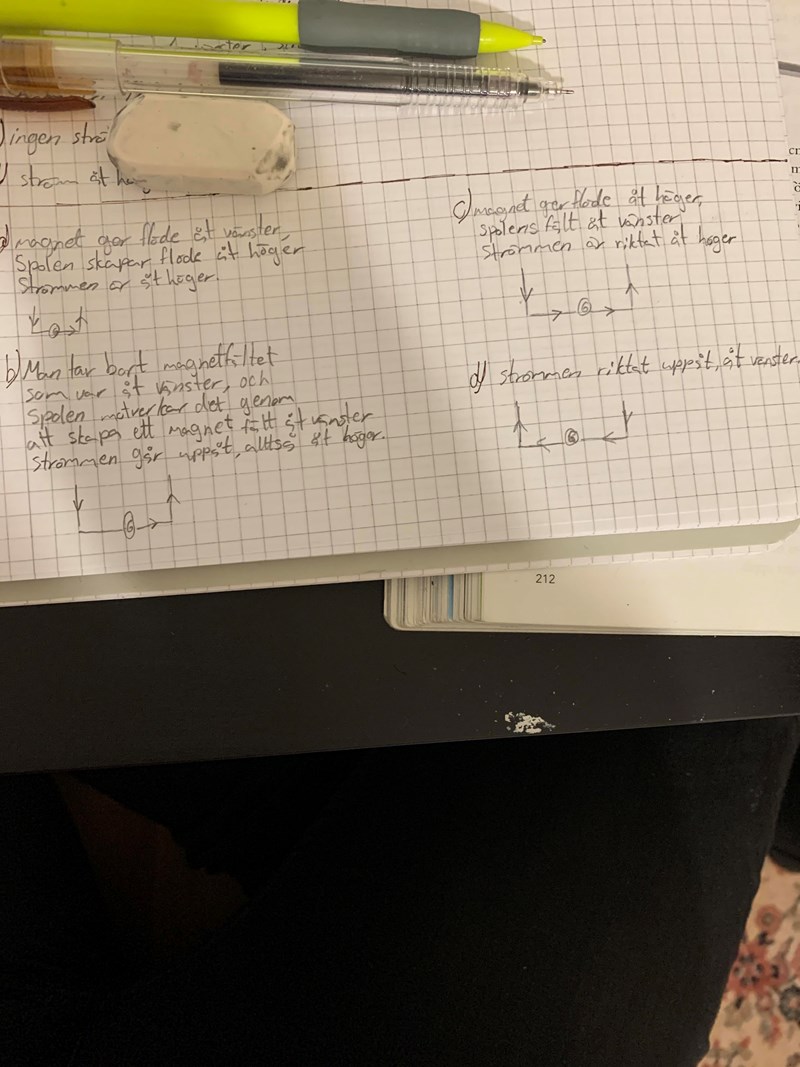 ingen strö
ström åt hö
a) magnet ger flöde åt vänster,
Spolen skapar flöde åt höger
Strömmen är åt höger.
G
b) Man tar bort magnetfältet
som var åt vänster, och
Spolen motverkar det genom
att skapa ett magnet fält åt vänster
strömmen går uppåt, alltså åt höger.
G
c) magnet ger flöde åt höger,
spolens fält åt vänster
strömmen är riktat åt höger
G
d) strömmen riktat uppåt, åt vänster.
G
212